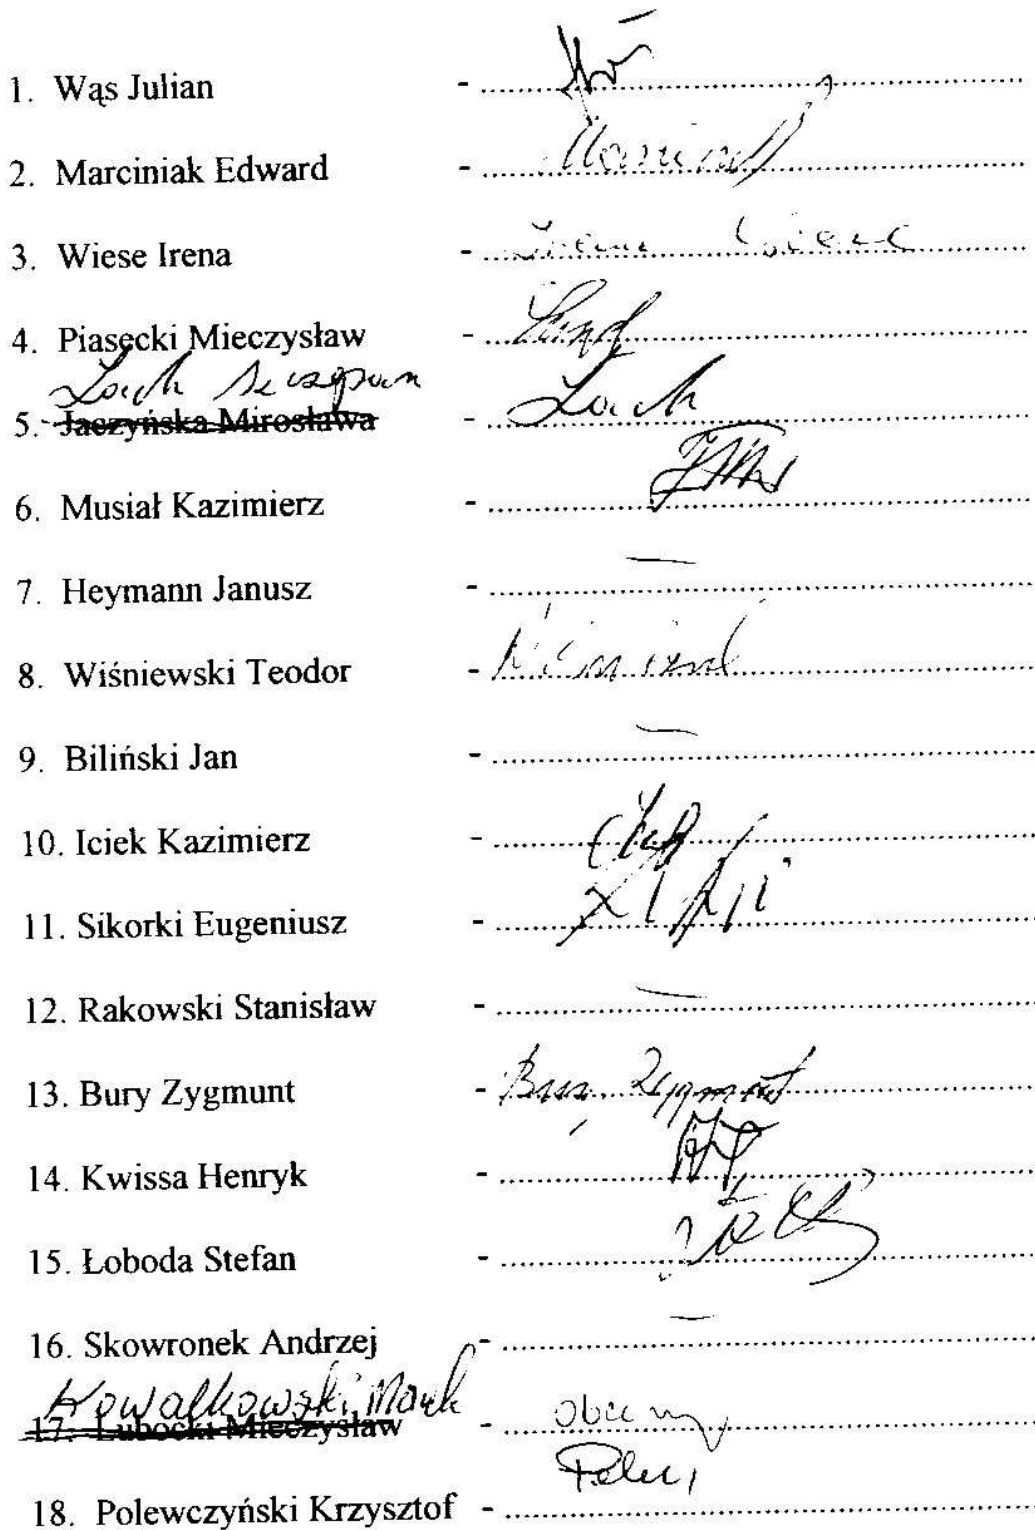 1. Wąs Julian -
2. Marciniak Edward -
3. Wiese Irena - Irena Wiese
4. Piasecki Mieczysław -
Loch Szczepan
5. Jaczyńska Mirosława - Loch
6. Musiał Kazimierz -
7. Heymann Janusz - —
8. Wiśniewski Teodor -
9. Biliński Jan - —
10. Iciek Kazimierz -
11. Sikorki Eugeniusz -
12. Rakowski Stanisław - —
13. Bury Zygmunt - Bury Zygmunt
14. Kwissa Henryk -
15. Łoboda Stefan -
16. Skowronek Andrzej - —
Kowalkowski Marek
17. Lubocki Mieczysław - obecny
18. Polewczyński Krzysztof -